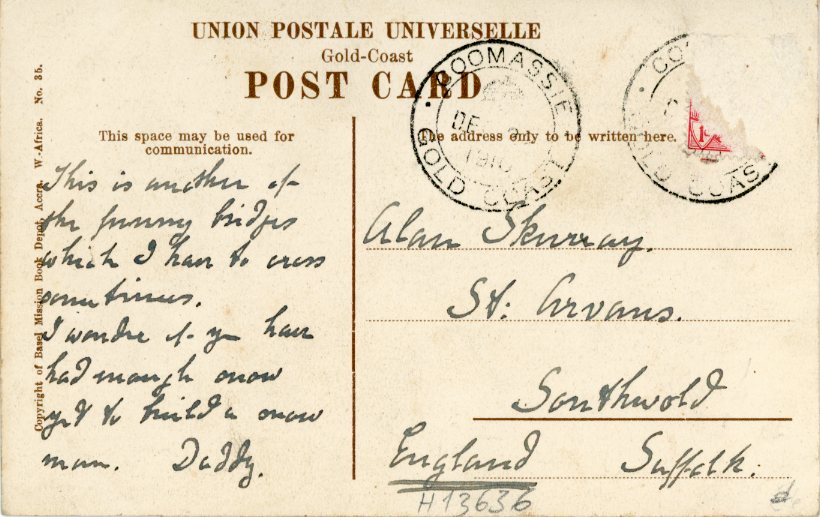 UNION POSTALE UNIVERSELLE
Gold-Coast
POST CARD
This space may be used for
communication.
The address only to be written here.
COOMASSIE
DE
1910
GOLD COAST
CO
GOLD COAS
1
Copyright of Basel Mission Book Depot, Accra. W-Africa. No. 35.
This is another of
the funny bridges
which I have to cross
sometimes.
I wonder if you have
had enough snow
yet to build a snow
man. Daddy.
Alan Skurray.
St: Arvans.
Southwold
England Suffolk.
H13636